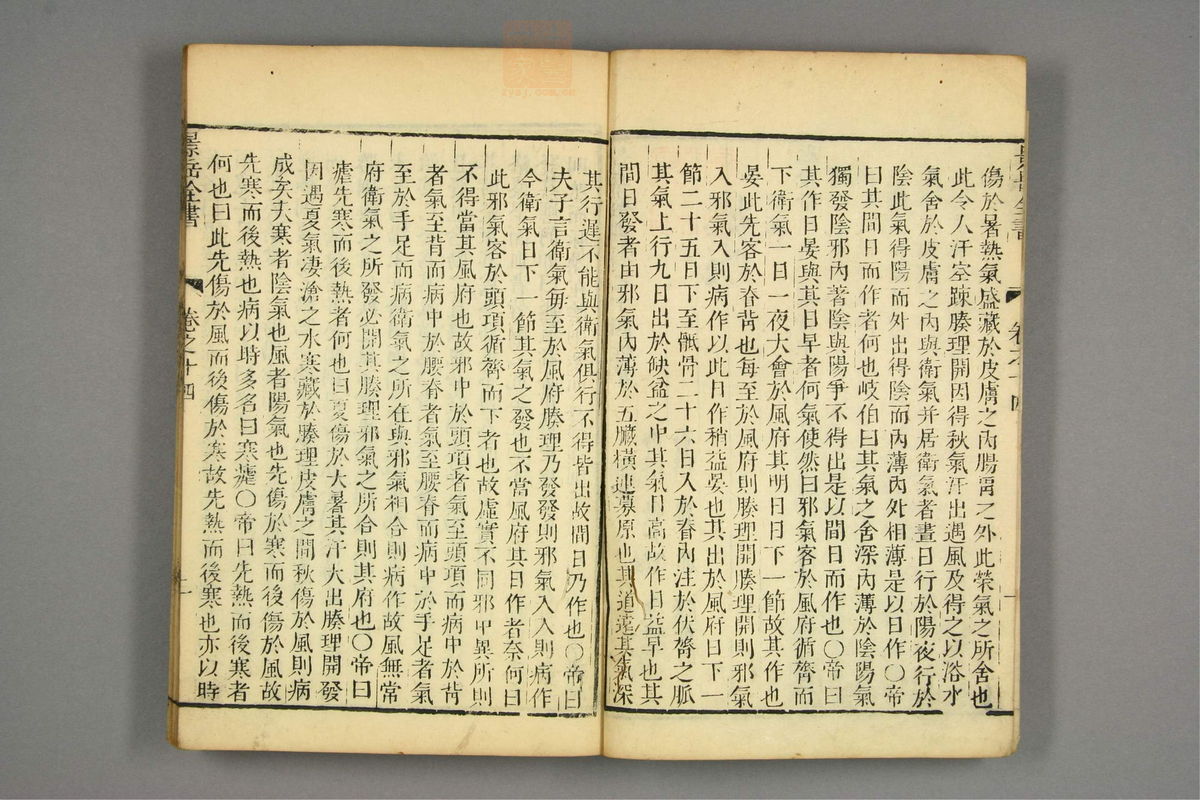 傷於暑熱氣盛藏於皮膚之內腸胃之外此榮氣之所舍也
此令人汗空疎腠理開因得秋氣汗出遇風及得之以浴水
氣舍於皮膚之內與衛氣并居衛氣者晝日行於陽夜行於
陰此氣得陽而外出得陰而內薄內外相薄是以日作○帝
曰其間日而作者何也岐伯曰其氣之舍深內薄於陰陽氣
獨發陰邪內著陰與陽爭不得出是以間日而作也○帝曰
其作日晏與其日早者何氣使然曰邪氣客於風府循膂而
下衛氣一日一夜大會於風府其明日日下一節故其作也
晏此先客於脊背也每至於風府則腠理開腠理開則邪氣
入邪氣入則病作以此日作稍益晏也其出於風府日下一
節二十五日下至骶骨二十六日入於脊內注於伏膂之脈
其氣上行九日出於缺盆之中其氣日高故作日益早也其
間日發者由邪氣內薄於五臟橫連募原也其道遠其氣深
其行遲不能與衛氣俱行不得皆出故間日乃作也○帝曰
夫子言衛氣每至於風府腠理乃發發則邪氣入入則病作
今衛氣日下一節其氣之發也不當風府其日作者奈何曰
此邪氣客於頭項循膂而下者也故虛實不同邪中異所則
不得當其風府也故邪中於頭項者氣至頭項而病中於背
者氣至背而病中於腰脊者氣至腰脊而病中於手足者氣
至於手足而病衛氣之所在與邪氣相合則病作故風無常
府衛氣之所發必開其腠理邪氣之所合則其府也○帝曰
瘧先寒而後熱者何也曰夏傷於大暑其汗大出腠理開發
因遇夏氣凄滄之水寒藏於腠理皮膚之間秋傷於風則病
成矣夫寒者陰氣也風者陽氣也先傷於寒而後傷於風故
先寒而後熱也病以時多名曰寒瘧○帝曰先熱而後寒者
何也曰此先傷於風而後傷於寒故先熱而後寒也亦以時
景岳全書 卷之十四
zysj.com.cn